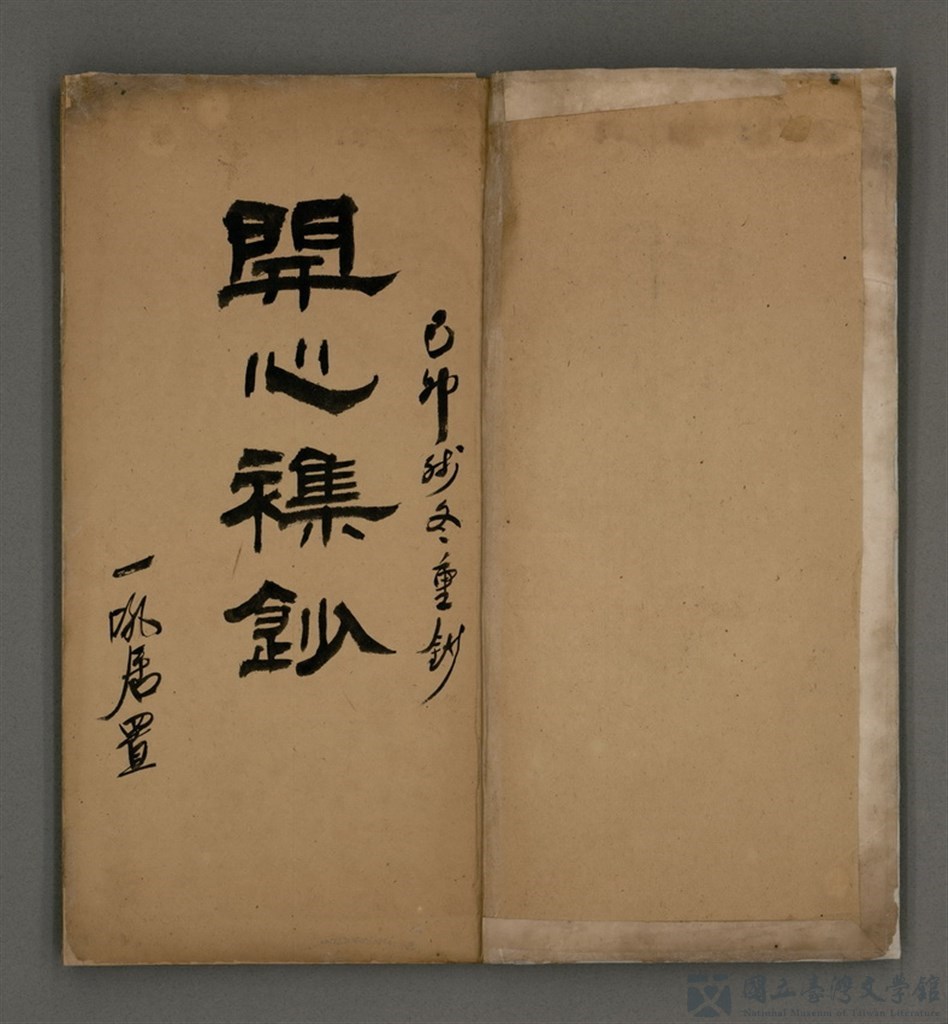 己卯殘冬重鈔
開心襍鈔
一吼居置
國立臺灣文學館
National Museum of Taiwan Literature